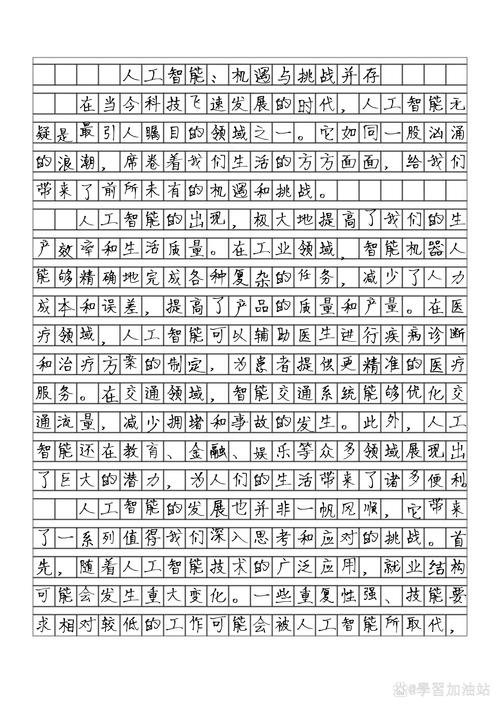 人工智能：机遇与挑战并存
在当今科技飞速发展的时代，人工智能无
疑是最引人瞩目的领域之一。它如同一股汹涌
的浪潮，席卷着我们生活的方方面面，给我们
带来了前所未有的机遇和挑战。
人工智能的出现，极大地提高了我们的生
产效率和生活质量。在工业领域，智能机器人
能够精确地完成各种复杂的任务，减少了人力
成本和误差，提高了产品的质量和产量。在医
疗领域，人工智能可以辅助医生进行疾病诊断
和治疗方案的制定，为患者提供更精准的医疗
服务。在交通领域，智能交通系统能够优化交
通流量，减少拥堵和事故的发生。此外，人工
智能还在教育、金融、娱乐等众多领域展现出
了巨大的潜力，为人们的生活带来了诸多便利
人工智能的发展也并非一帆风顺，它带来
了一系列值得我们深入思考和应对的挑战。首
先，随着人工智能技术的广泛应用，就业结构
可能会发生重大变化。一些重复性强、技能要
求相对较低的工作可能会被人工智能所取代，
@學習加油站